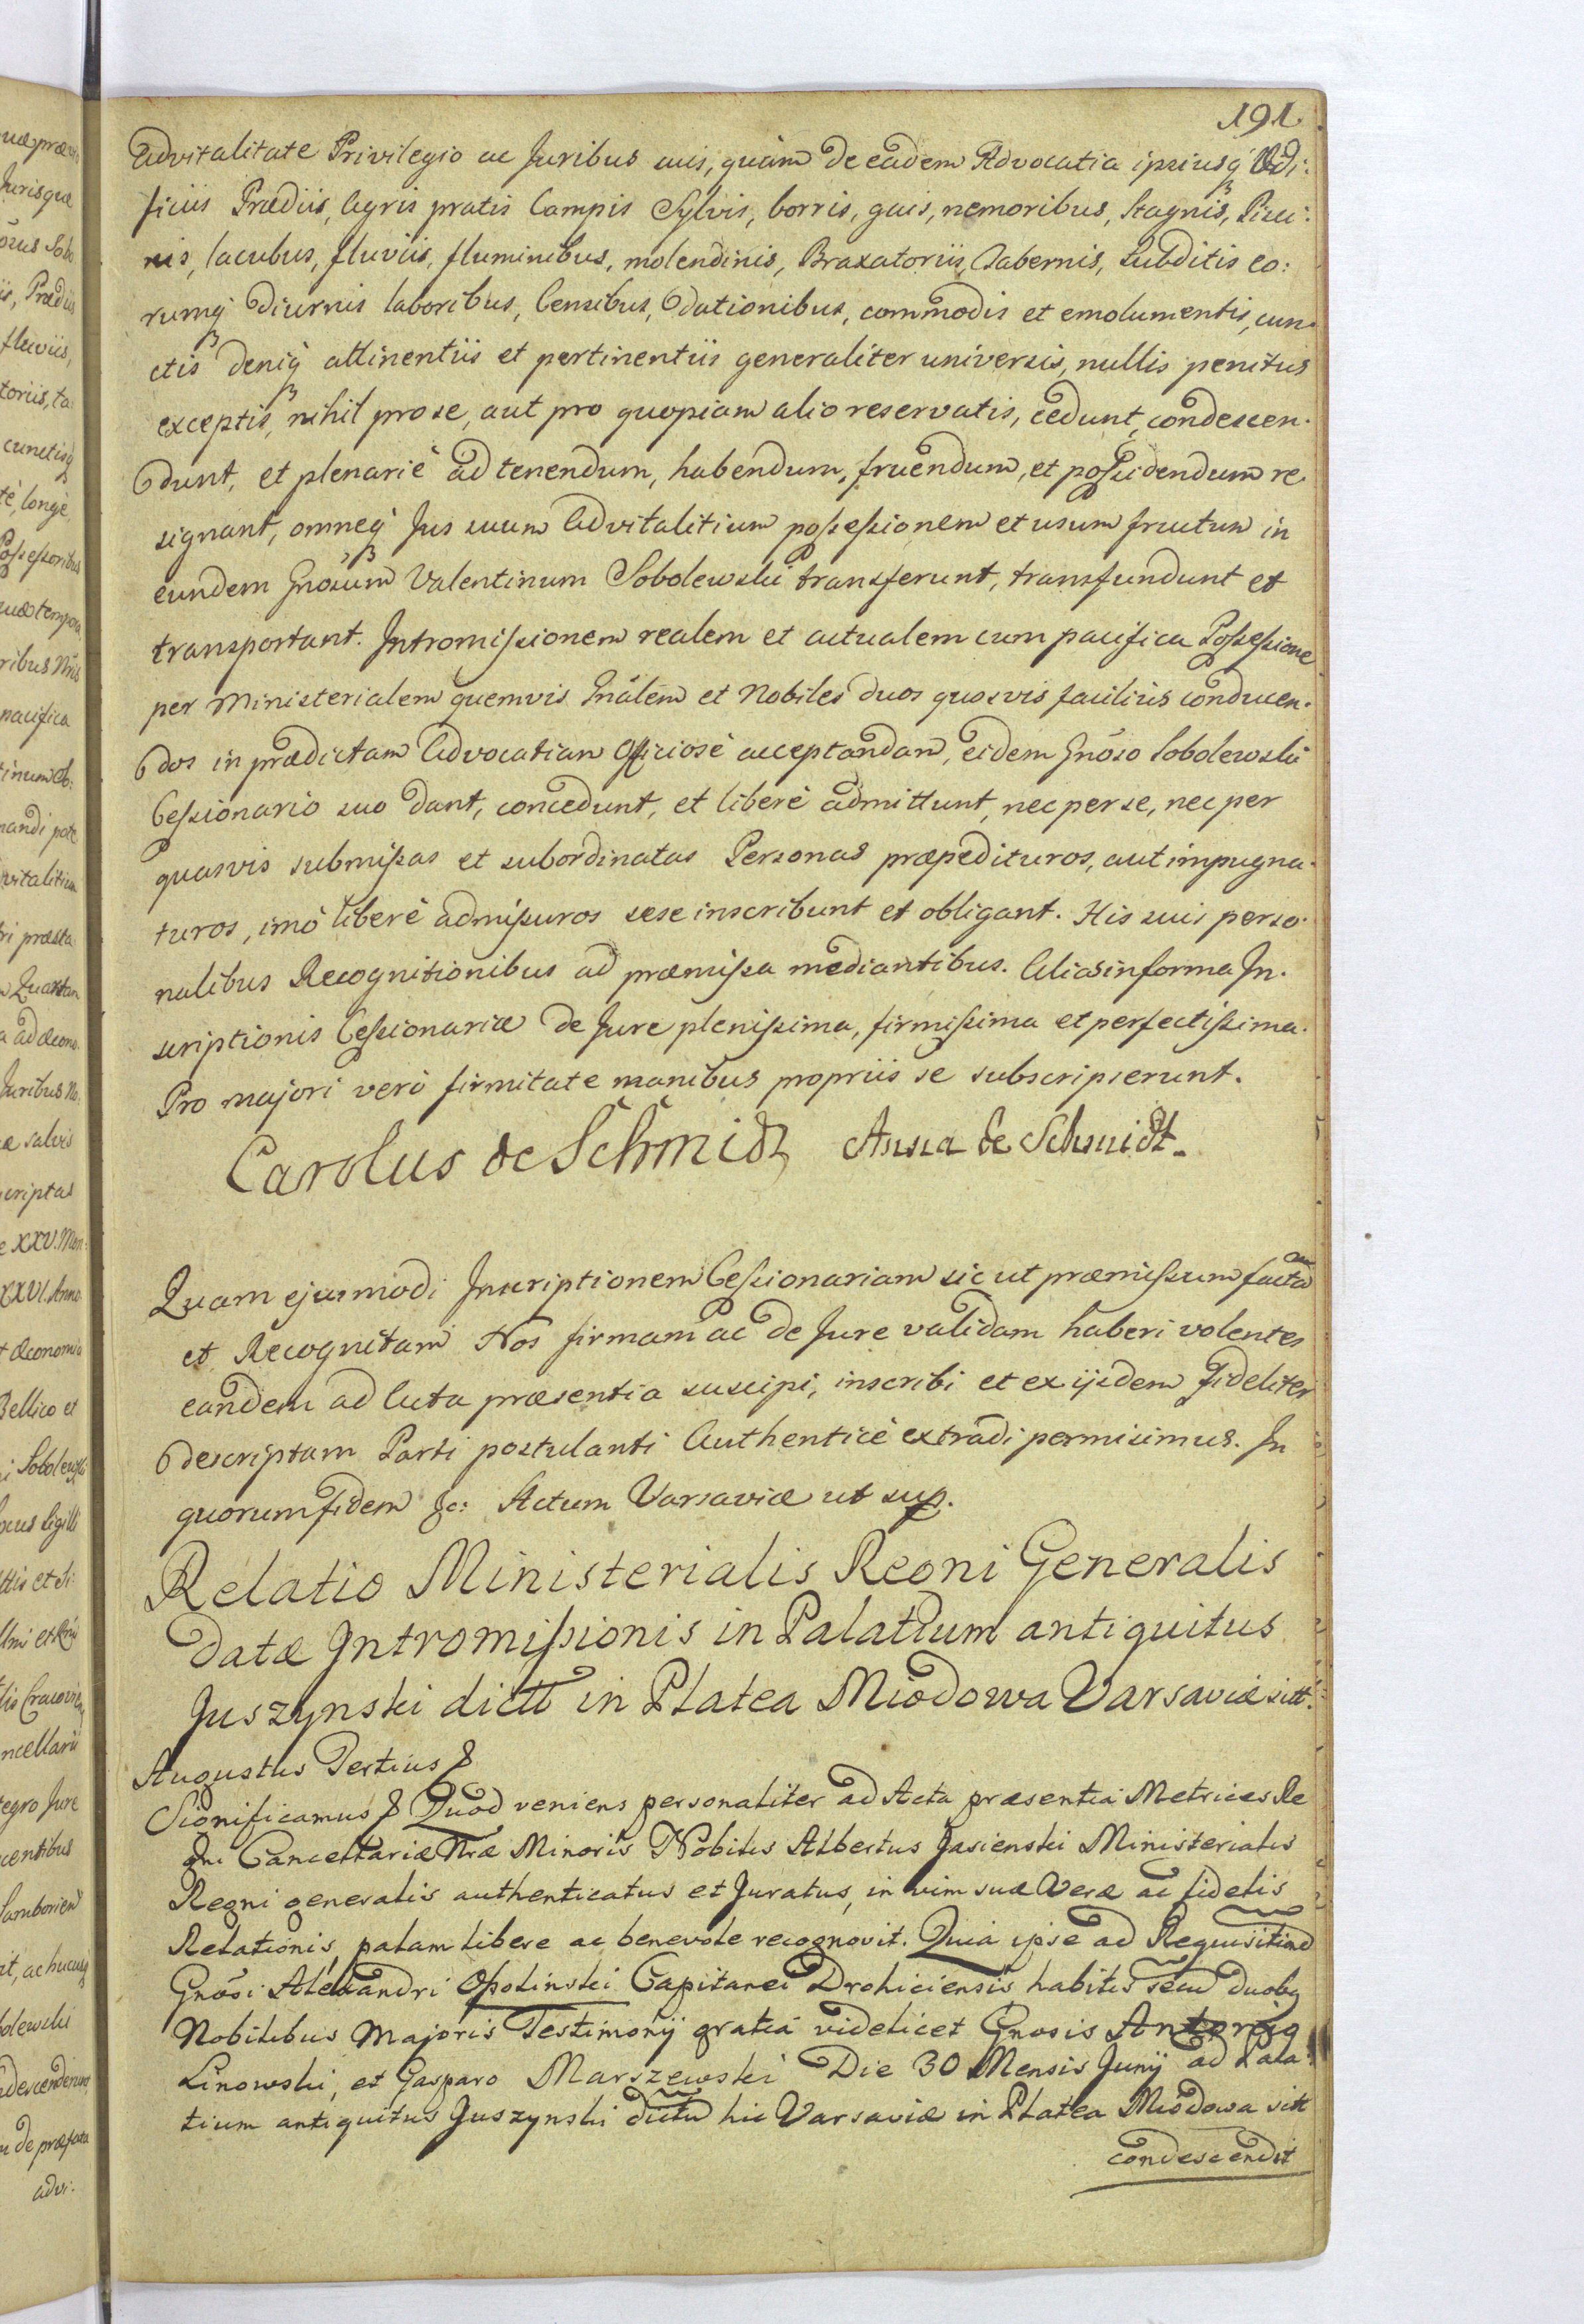 191
Advitalitate Privilegio ac Juribus suis, quàm de eadem Advocatia ipsiusq́ Ædi:
ficiis Prædiis, Agris pratis Campis Sylvis, borris, gais, nemoribus, Stagnis, Pisci:
nis, lacubus, fluviis, fluminibus, molendinis, Braxatoriis, Tabernis, Subditis eo:
rumq́ diurnis laboribus, Censibus, dationibus, commodis et emolumentis, cun:
ctis deniq́ attinentiis et pertinentiis generaliter universis, nullis penitus
exceptis, nihil pro se, aut pro quopiam alio reservatis, cedunt, condescen:
dunt, et plenariè ad tenendum, habendum, fruendum, et possidendum re
signant, omneq́ Jus suum Advitalitium possessionem et usum fructum in
eundem Gnōsum Valentinum Sobolewski transferunt, transfundunt et
transportant. Intromissionem realem et actualem cum pacifica Possessione
per Ministerialem quemvis Gnālem et Nobiles duos quosvis faciliùs conducen:
dos in prædictam Advocatiam Officiosè acceptandam, eidem Gnōso Sobolewski
Cessionario suo dant, concedunt, et liberè admittunt, nec per se, nec per
quasvis submissas et subordinatas Personas præpedituros, aut impugna:
turos, imò liberè admissuros sese inscribunt et obligant. His suis perso:
nalibus Recognitionibus ad præmissa mediantibus. Alias in forma In:
scriptionis Cessionariæ de Jure plenissima, firmissima et perfectissima.
Pro majori verò firmitate manibus propriis se subscripserunt.
Carolus de Schmidt Anna de Schmidt.
Quam ejusmodi Inscriptionem Cessionariam sic ut præmissum factam
et Recognitam Nos firmam ac de Jure validam haberi volentes
eandem ad Acta præsentia suscipi, inscribi et ex ijsdem fideliter
descriptam Parti postulanti Authenticè extradi permisimus. In
quorum fidem &c: Actum Varsaviæ ut sup.
Relatio Ministerialis Regni Generalis
datæ Intromissionis in Palatium antiquitus
Juszynski dictt in Platea Miodowa Varsaviæ sitt.
Augustus Tertius &
Significamus & Quod veniens personaliter ad Acta præsentia Metrices Re
gni Cancellariæ Nræ Minoris Nobilis Albertus Jasienski Ministerialis
Regni generalis authenticatus et Juratus, in vim suæ Veræ ac fidelis
Relationis, palam libere ac benevole recognovit. Quia ipse ad Requisitione
Gnōsi Alexandri Opolinski Capitanei Drohiciensis habitis secu duobq
Nobilibus Majoris Testimonij gratia videlicet Gnosis Antonio
Linowski, et Gasparo Marszewski Die 30 Mensis Junij ad Pala:
tium antiquitus Juszynski dictu hic Varsaviæ in Platea Miodowa sitt
condescendit